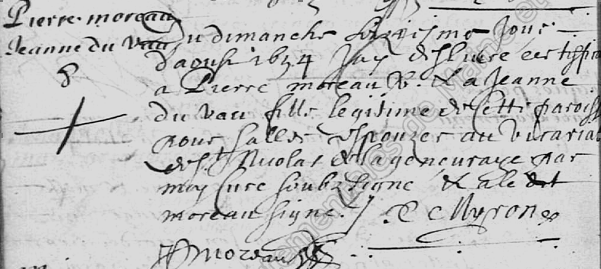 Pierre moreau
Jeanne du vau
Du dimanche seiziesme Jour
d'aoust 1654 Jay deliuré certifficat
a Pierre moreau & a Jeanne
du vau fille legitime de cette paroisse
pour aller espouser au vicariat
de St Nicolas de par
moy curé soubzsigné & a ledit
moreau signé
moreau